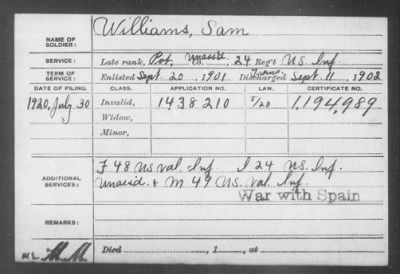 NAME OF SOLDIER: Williams, Sam
SERVICE: Late rank, Pvt, Unassd. Co. 24 Reg't U.S. Inf.
TERM OF SERVICE: Enlisted Sept. 20, 1901 Discharged Sept. 11, 1902
DATE OF FILING. CLASS. APPLICATION NO. LAW. CERTIFICATE NO.
1920, July 30 Invalid, 1438210 1,194,989
Widow,
Minor,
ADDITIONAL SERVICES: F 48 US Vol. Inf. I 24 U.S. Inf.
Unassd. & M 49 U.S. Vol. Inf.
War with Spain
REMARKS:
Died , 1 , at